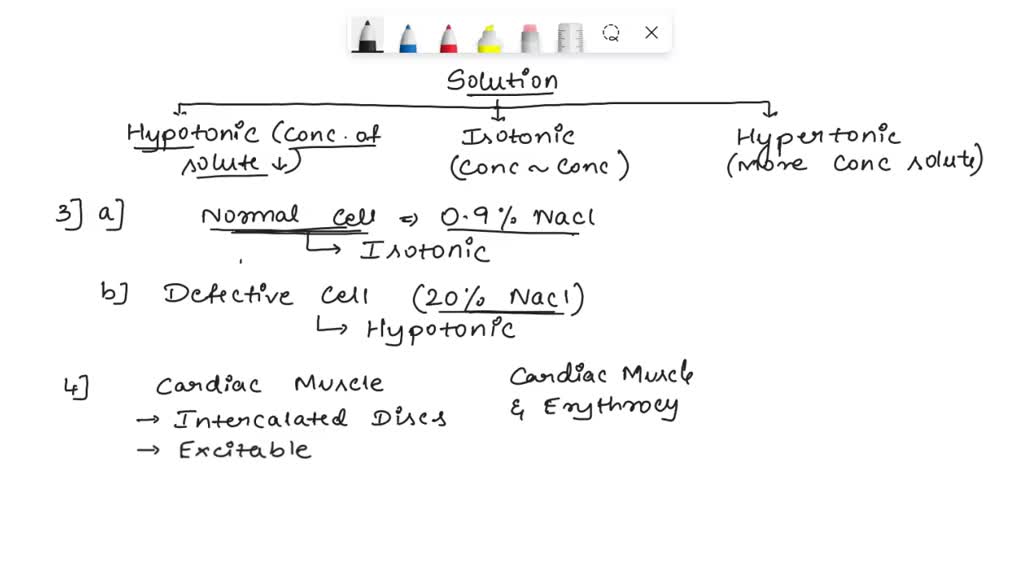 Solution
Hypotonic (conc. of solute ↓)
Isotonic (conc ~ conc)
Hypertonic (More conc solute)
3] a] Normal cell ⇒ 0.9% Nacl
↳ Isotonic
b] Defective cell (20% Nacl)
↳ Hypotonic
4] Cardiac Muscle
→ Intercalated Discs
→ Excitable
Cardiac Muscle
& Erythrocy